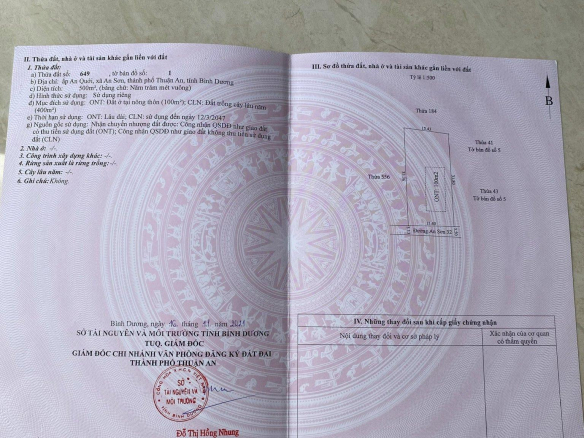 II. Thửa đất, nhà ở và tài sản khác gắn liền với đất
1. Thửa đất:
a) Thửa đất số: 649 , tờ bản đồ số: 1
b) Địa chỉ: ấp An Quới, xã An Sơn, thành phố Thuận An, tỉnh Bình Dương
c) Diện tích: 500m², (bằng chữ: Năm trăm mét vuông)
d) Hình thức sử dụng: Sử dụng riêng
đ) Mục đích sử dụng: ONT: Đất ở tại nông thôn (100m²); CLN: Đất trồng cây lâu năm
(400m²)
e) Thời hạn sử dụng: ONT: Lâu dài; CLN: sử dụng đến ngày 12/3/2047
g) Nguồn gốc sử dụng: Nhận chuyển nhượng đất được: Công nhận QSDĐ như giao đất
có thu tiền sử dụng đất (ONT); Công nhận QSDĐ như giao đất không thu tiền sử dụng
đất (CLN)
2. Nhà ở: -/-.
3. Công trình xây dựng khác: -/-.
4. Rừng sản xuất là rừng trồng: -/-.
5. Cây lâu năm: -/-.
6. Ghi chú: Không.
Bình Dương, ngày tháng 11 năm
SỞ TÀI NGUYÊN VÀ MÔI TRƯỜNG TỈNH BÌNH DƯƠNG
TUQ. GIÁM ĐỐC
GIÁM ĐỐC CHI NHÁNH VĂN PHÒNG ĐĂNG KÝ ĐẤT ĐAI
THÀNH PHỐ THUẬN AN
SỞ
TÀI NGUYÊN VÀ
MÔI TRƯỜNG
TỈNH BÌNH DƯƠNG
Đỗ Thị Hồng Nhung
III. Sơ đồ thửa đất, nhà ở và tài sản khác gắn liền với đất
Tỷ lệ 1/500
B
Thửa 184
Thửa 41
Tờ bản đồ số 5
Thửa 556
ONT: 100m2
Thửa 43
Tờ bản đồ số 5
Đường An Sơn 52
IV. Những thay đổi sau khi cấp giấy chứng nhận
Nội dung thay đổi và cơ sở pháp lý
Xác nhận của cơ quan
có thẩm quyền